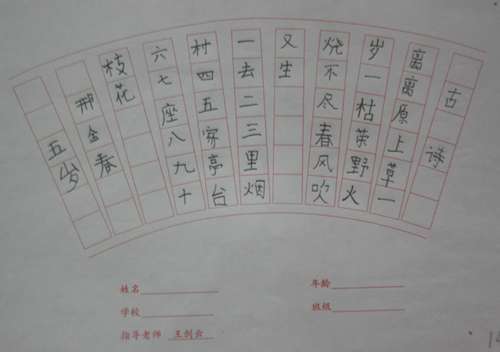 古诗
离离原上草一
岁一枯荣野火
烧不尽春风吹
又生
一去二三里烟
村四五家亭台
六七座八九十
枝花
邢金春
五岁
姓名 年龄
学校 班级
指导老师